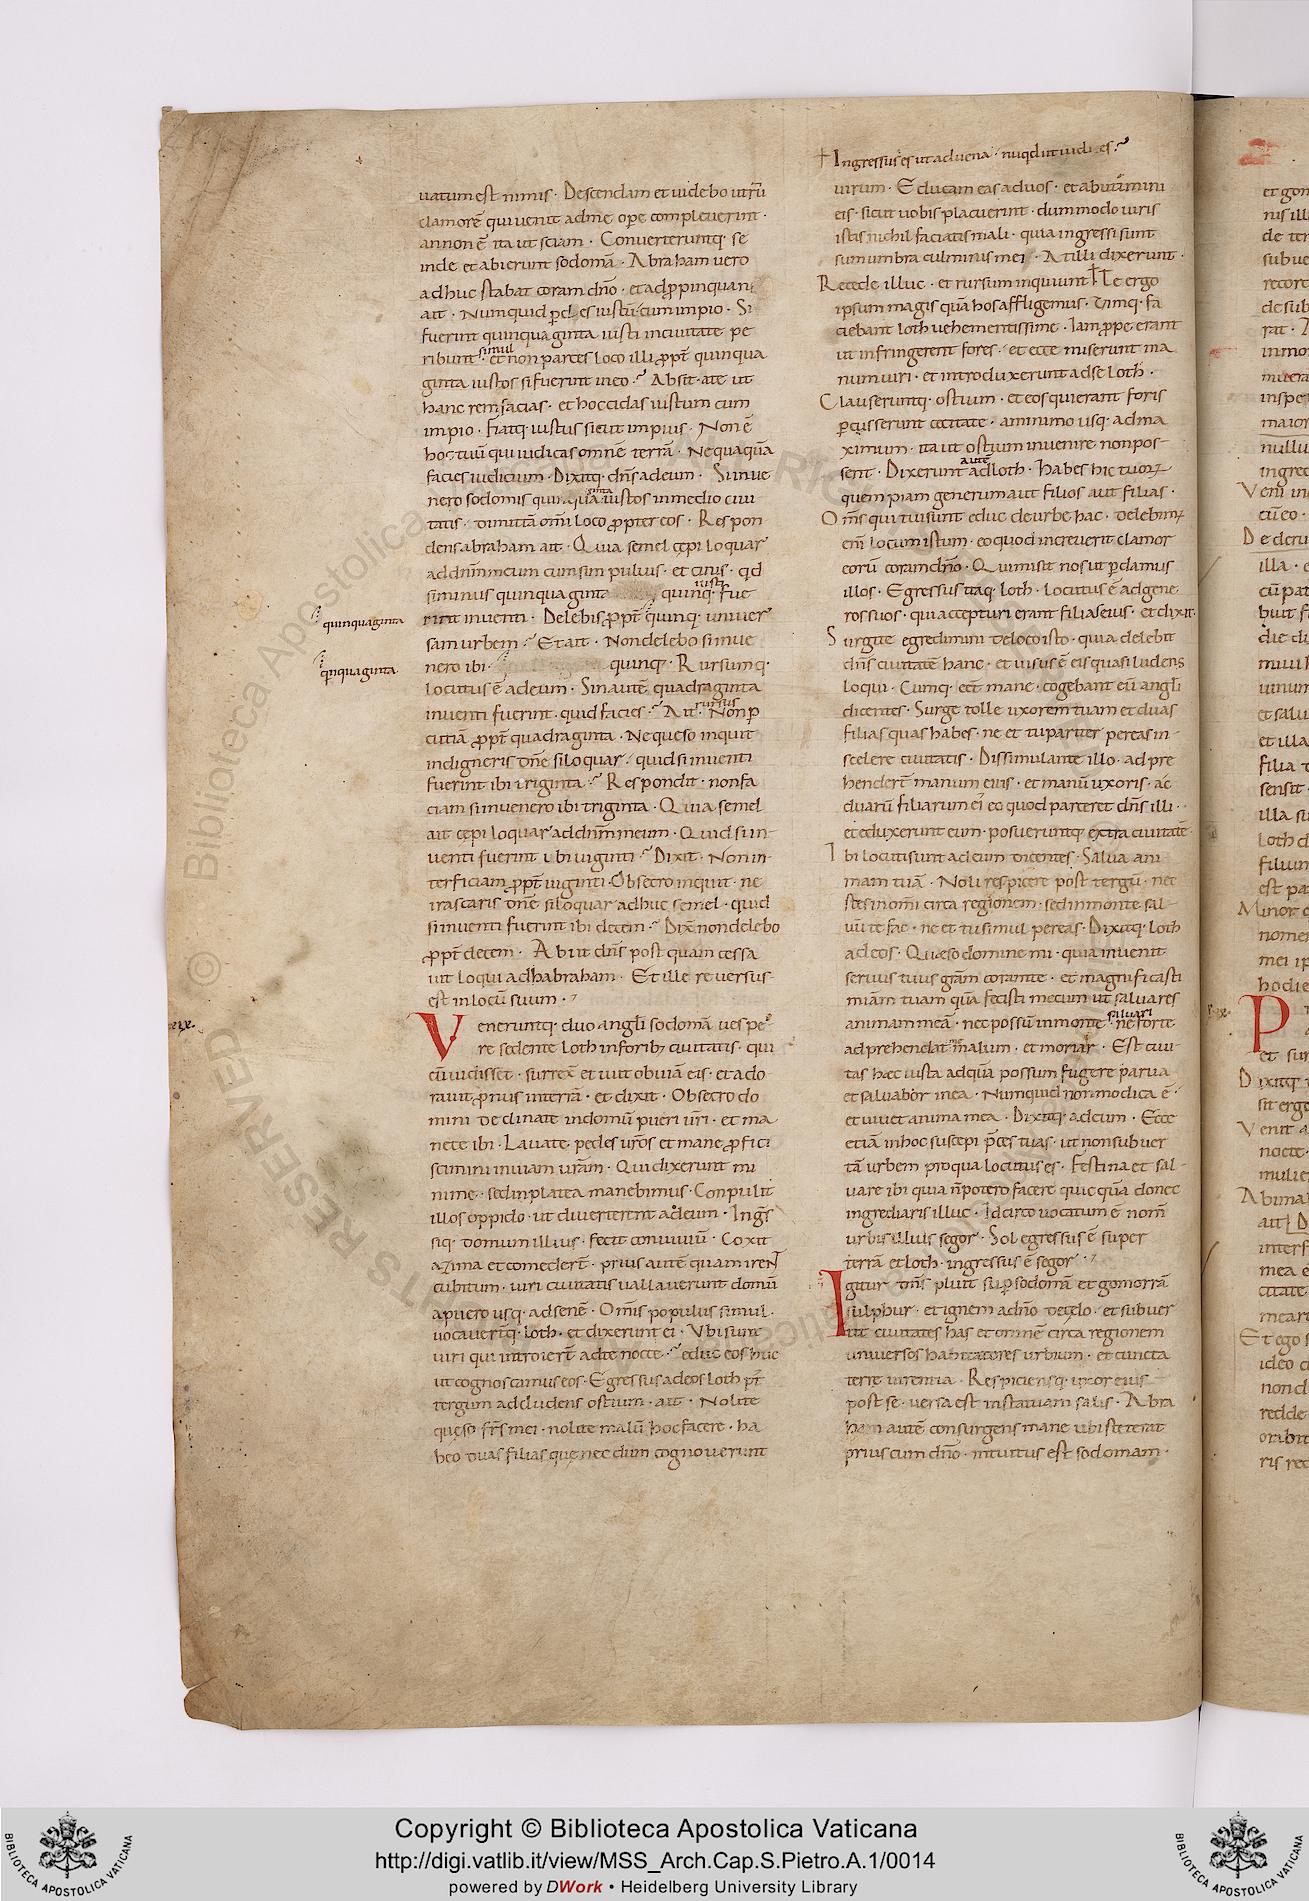 uatum est nimis · Descendam et uidebo utrū
clamorē qui uenit ad me ope compleuerint ·
an non ē ita ut sciam · Conuerteruntq· se
inde et abierunt sodomā · Abraham uero
adhuc stabat coram dnō · et adpropinquans
ait · Numquid pdes iustū cum impio · Si
fuerint quinquaginta iusti in ciuitate pe
ribunt simul · et non parces loco illi propt quinqua
ginta iustos si fuerint in eo · Absit a te ut
hanc rem facias · et hoccidas iustum cum
impio · fiatq· iustus sicut impius · Non ē
hoc tuū qui iudicas omnē terrā · Nequaquā
facies iudicium · Dixitq· dn̄s ad eum · Si inue
nero sodomis quinquaginta iustos in medio ciui
tatis · dimittā omī loco propter eos · Respon
dens abraham ait · Quia semel cępi loquar
ad dnm̄ meum cum sim puluis · et cinis · qd
si minus quinquaginta iusti quinq· fue
quinquaginta
rint inuenti · Delebis propt quinq· uniuer
sam urbem · Et ait · Non delebo si inue
quinquaginta
nero ibi · quinq· Rursumq·
locutus ē ad eum · Sin autē quadraginta
inuenti fuerint · quid facies · Ait rursus · Non p
cutiā propt quadraginta · Ne queso inquit
indigneris dn̄e si loquar · quid si inuenti
fuerint ibi triginta · Respondit · non fa
ciam si inuenero ibi triginta · Quia semel
ait cępi loquar ad dnm̄ meum · Quid si in
uenti fuerint ubi uiginti · Dixit · Non in
terficiam propt uiginti · Obsecro inquit · ne
irascaris dn̄e si loquar adhuc semel · quid
si inuenti fuerint ibi decem · Dix̄ non delebo
propt decem · Abiit dn̄s post quam cessa
uit loqui ad habraham · Et ille reuersus
est in locū suum ·
xix.
Veneruntq· duo angli sodomā uespe
re sedente loth in forib; ciuitatis · qui
cū uidisset · surrexͭ et iuit obuiā eis · et ado
rauit pronus in terrā · et dixit · Obsecro do
mini declinate in domū pueri uri · et ma
nete ibi · Lauate pedes uros et mane profici
scimini in uiam uram · Qui dixerunt mi
nime · sed in platea manebimus · Conpulit
illos oppido · ut diuerterent ad eum · Ingres
siq· domum illius · fecit conuiuiū · Coxit
azima et comedert · prius autē quam irent
cubitum · uiri ciuitatis uallauerunt domū
a puero usq· ad senē · Omīs populus simul ·
uocauertq· loth · et dixerunt ei · Vbi sunt
uiri qui introiert ad te nocte · educ eos huc
ut cognoscamus eos · Egressus ad eos loth pt
tergum adcludens ostium · ait · Nolite
queso frs mei · nolite malū hoc facere · ha
beo duas filias que nec dum cognouerunt
Ingressus es ut aduena · nuqd ut iudices
uirum · Educam eas ad uos · et abutimini
eis · sicut uobis placuerint · dummodo uiris
istis nichil faciatis mali · quia ingressi sunt
sum umbra culminis mei · At illi dixerunt ·
Recede illuc · et rursum inquiunt Te ergo
ipsum magis quā hos affligemus · Vimq· fa
ciebant loth uehementissime · Iam prope erant
ut infringerent fores · et ecce miserunt ma
num uiri · et introduxerunt ad se loth ·
Clauseruntq· ostium · et eos qui erant foris
pcusserunt cecitate · a minimo usq· ad ma
ximum · ita ut ostium inuenire non pos
sent · Dixerunt autē ad loth · habes hic tuorum
quempiam generum aut filios aut filias ·
Oms qui tui sunt educ de urbe hac · delebimus
enī locum istum · eo quod increuerit clamor
eorū coram dnō · Qui misit nos ut pdamus
illos · Egressus itaq· loth · locutus ē ad gene
ros suos · qui accepturi erant filias eius · et dixit
Surgite egredimini de loco isto · quia delebit
dn̄s ciuitatē hanc · et uisus ē eis quasi ludens
loqui · Cumq· eet mane · cogebant eū angli
dicentes · Surge tolle uxorem tuam et duas
filias quas habes · ne et tu pariter pereas in
scelere ciuitatis · Dissimulante illo · adpre
henderт manum eius · et manū uxoris · ac
duarū filiarum ei eo quod parceret dn̄s illi ·
et eduxerunt eum · posueruntq extra ciuitatē
Ibi locuti sunt ad eum dicentes · Salua ani
mam tuā · Noli respicere post tergū · nec
stes in omī circa regionem · sed in monte sal
uū te fac · ne et tu simul pereas · Dixitq· loth
ad eos · Quæso domine mi · quia inuenit
seruus tuus grām coram te · et magnificasti
miām tuam quā fecisti mecum ut saluares
animam meā · nec possū in monte saluari · ne forte
adprehendat me malum · et moriar · Est ciui
tas hæc iuxta ad quā possum fugere parua
et saluabor in ea · Numquid non modica ē
et uiuet anima mea · Dixitq· ad eum · Ecce
etiā in hoc suscepi pces tuas · ut non subuer
tā urbem pro qua locutus es · Festina et sal
uare ibi quia n̄ potero facere quicquā donec
ingrediaris illuc · Idcirco uocatum ē nom̄
urbis illuis segor · Sol egressus ē super
terrā et loth · ingressus ē segor ·
Igitur dn̄s pluit sup sodomā et gomorrā
sulphur · et ignem a dnō de cęlo · et subuer
tit ciuitates has et omnē circa regionem
uniuersos habitatores urbium · et cuncta
terre uirentia · Respiciensq· uxor eius
post se · uersa est in statuam salis · Abra
ham autē consurgens mane ubi steterat
prius cum dnō · intuitus est sodomam ·
Copyright © Biblioteca Apostolica Vaticana
http://digi.vatlib.it/view/MSS_Arch.Cap.S.Pietro.A.1/0014
powered by DWork • Heidelberg University Library